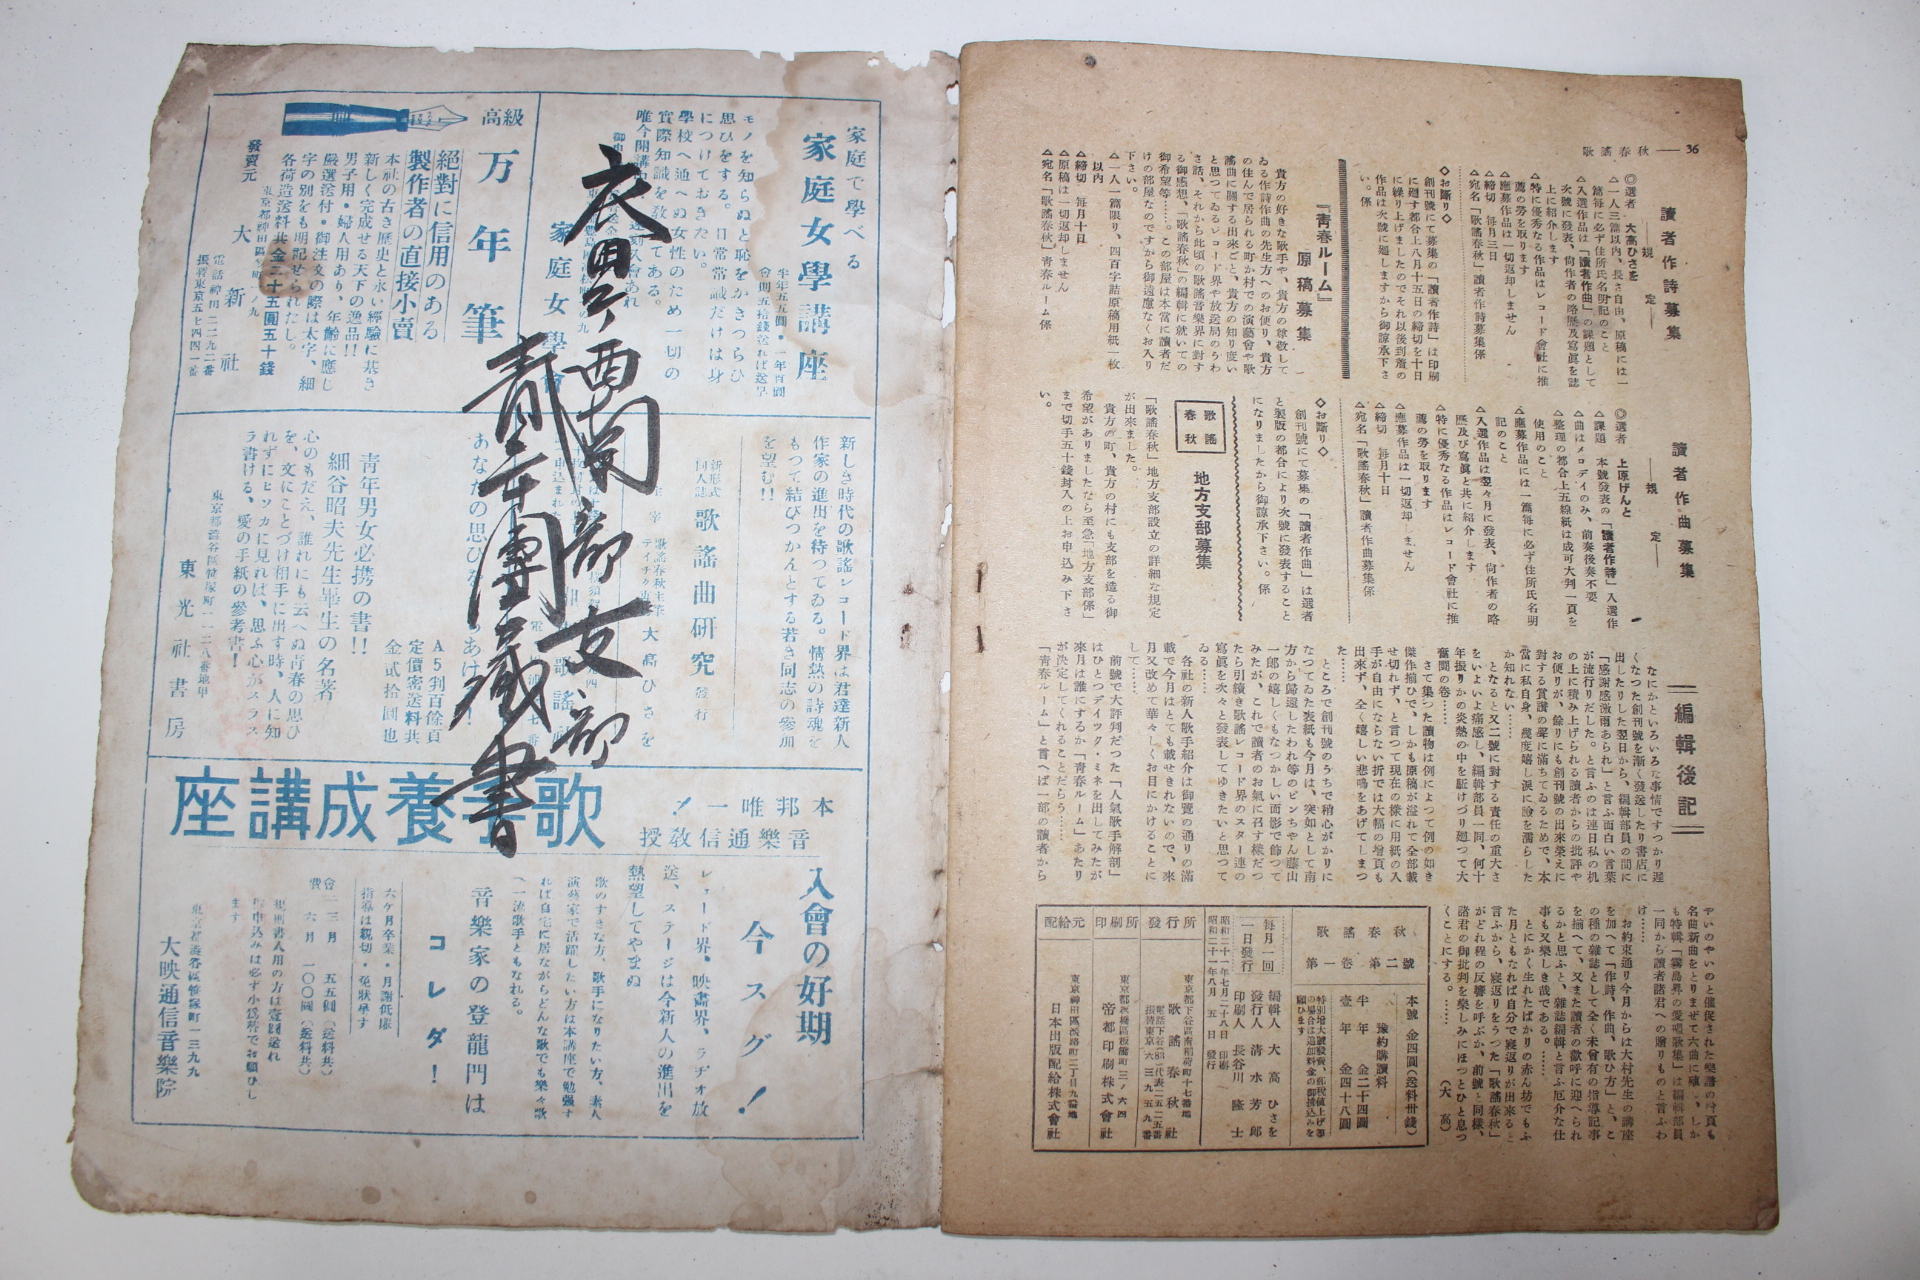 36 —— 秋春謠歌
讀者作詩募集
——規 定——
◎選者 大高ひさを
△一人三篇以内、長さ自由、原稿には一
篇毎に必ず住所氏名明記のこと
△入選作品は「讀者作曲」の課題として
次號に發表、尚作者の略歴及寫眞を誌
上に紹介します
△特に優秀なる作品はレコード會社に推
薦の勞を取ります
△應募作品は一切返却しません
△締切 毎月三日
△宛名「歌謠春秋」讀者作詩募集係
◇お斷り◇
創刊號にて募集の「讀者作詩」は印刷
に廻す都合上八月十五日の締切を十日
に繰り上げましたのでそれ以後到着の
作品は次號に廻しますから御諒承下さ
い。係
『靑春ルーム』
原稿募集
貴方の好きな歌手や、貴方の雄敬して
ゐる作詩作曲の先生方へのお便り、貴方
の住んで居られる町か村での演藝會や歌
謠曲に關する出來ごと、貴方の知り度い
と思つてゐるレコード界や放送局のうわ
さ話、それから此頃の歌謠音樂界に對す
る御感想、「歌謠春秋」の編輯に就いての
御希望等……。この部屋は本當に讀者だ
けの部屋なのですから御遠慮なくお入り
下さい。
△一人一篇限り、四百字詰原稿用紙一枚
以内
△締切 毎月十日
△原稿は一切返却しません
△宛名「歌謠春秋」靑春ルーム係
讀者作曲募集
——規 定——
◎選者 上原げんと
△課題 本號發表の「讀者作詩」入選作
△曲はメロデイのみ、前奏後奏不要
△整理の都合上五線紙は成可大判一頁を
使用のこと
△應募作品には一篇毎に必ず住所氏名明
記のこと
△入選作品は翌々月に發表、尚作者の略
歴及び寫眞と共に紹介します
△特に優秀なる作品はレコード會社に推
薦の勞を取ります
△應募作品は一切返却しません
△締切 毎月十日
△宛名「歌謠春秋」讀者作曲募集係
◇お斷り◇
創刊號にて募集の「讀者作曲」は選者
と製版の都合により次號に發表すること
になりましたから御諒承下さい。係
歌謠
春秋
地方支部募集
「歌謠春秋」地方支部設立の詳細な規定
が出來ました。
貴方の町、貴方の村にも支部を造る御
希望がありましたなら至急「地方支部係」
まで切手五十錢封入の上お申込み下さ
い。
編輯後記
なにかといろいろな事情ですつかり遲
くなつた創刊號を漸く發送したり書店に
出したりした翌日から、編輯部員の間に
「感謝感激雨あられ」と言ふ面白い言葉
が流行りだした。と言ふのは連日私の机
の上に積み上げられる讀者からの批評や
お便りが、餘りにも創刊號の出來榮えに
對する賞讃の聲に滿ちてゐるためで、本
當に私自身、幾度嬉し淚に臉を濡らした
か知れない……
となると又二號に對する責任の重大さ
をいよいよ痛感し、編輯部員一同、何十
年振りかの炎熱の中を駈けづり廻つて大
奮鬪の卷……
さて集つた讀物は例によつて例の如き
傑作揃ひで、しかも原稿が溢れて全部載
せ切れず、と言つて現在の樣に用紙の入
手が自由にならない折では大幅の增頁も
出來ず、全く嬉しい悲鳴をあげてしまつ
た……
ところで創刊號のうちで稍心がかりに
なつてゐた表紙も今月は、突如として南
方から歸還したわれ等のピンちやん藤山
一郎の嬉しくもなつかしい面影で飾つて
みたが、これで讀者のお氣に召す樣だつ
たら引續き歌謠レコード界のスター達の
寫眞を次々と發表してゆきたいと思つて
ゐる……
各社の新人歌手紹介は御覽の通りの滿
載で今月はとても載せきれないので、來
月又改めて華々しくお目にかけることに
して……
前號で大評判だつた「人氣歌手解剖」
はひとつデイツク・ミネを出してみたが
來月は誰にするか「靑春ルーム」あたり
が決定してくれることだらう……
「靑春ルーム」と言へば一部の讀者から
やいのやいのと催促された樂譜の增頁も
名曲新曲をとりまぜて六曲に殖し、しか
も特輯「霧島昇の愛唱歌集」は編輯部員
一同から讀者諸君への贈りものと言ふわ
け……
お約束通り今月からは大村先生の講座
を加へて「作詩、作曲、歌ひ方」と、こ
の種の雜誌として全く未曾有の指導記事
を揃へて、又また讀者の歡呼に迎へられ
るかと思ふと、雜誌編輯と言ふ厄介な仕
事も又樂しき哉である。……
とにかく生れたばかりの赤ん坊でもふ
た月ともなれば自分で寢返りが出來ると
言ふから、寢返りをうつた「歌謠春秋」
がどれ程の反響を呼ぶか、前號と同樣、
諸君の御批判を樂しみにほつとひと息つ
くことにする。…… (大高)
歌謠春秋
第一卷 第二號
本號 金四圓(送料卅錢)
豫約購讀料
半年 金二十四圓
壹年 金四十八圓
特別增大號發賣、郵稅値上げ等
の場合は追加料金の御拂込みを
願ひます
每月一回
一日發行
編輯人 大高ひさを
發行人 清水芳郎
印刷人 長谷川隆士
昭和二十一年七月二十八日 印刷
昭和二十一年八月五日 發行
發行所
東京都下谷區南稻荷町十七番地
歌謠春秋社
電話下谷(83)代表二五二五番
振替東京六三九五九番
印刷所
東京都板橋區板橋町三ノ六四
帝都印刷株式會社
配給元
東京神田區淡路町二丁目九番地
日本出版配給株式會社
家庭で學べる
家庭女學講座
半年五五圓・一年百圓
分割五拾錢送れば送呈
モノを知らぬと恥をかきつらひ
思ひをする。日常常識だけは身
につけておきたい。
學校へ通へぬ女性のため一切の
實際知識を敎へてある。
唯今開講中、至急入會あれ
家庭女學會
高級
万年筆
絕對に信用のある
製作者の直接小賣
本社の古き歷史と永い經驗に基き
新しく完成せる天下の逸品!!
男子用・婦人用あり、年齡に應じ
嚴選送付・御注文の際は太字、細
字の別をも明記せられたし。
各荷造送料共金二十五圓五十錢
發賣元
大新社
電話神田二二九二番
振替東京五七四四一番
新しき時代の歌謠レコード界は君達新人
作家の進出を待つてゐる。情熱の詩魂を
もつて結びつかんとする若き同志の參加
を望む!!
新形式
同人誌
歌謠曲硏究 發行
主宰
歌謠春秋主筆
大高ひさを
靑年男女必携の書!!
細谷昭夫先生畢生の名著
心のもだえ、誰れにも云へぬ靑春の思ひ
を、文にことづけ相手に出す時、人に知
れずにヒツカに見れば、思ふ心がスラス
ラ書ける、愛の手紙の參考書!
A5判百餘頁
定價密送料共
金貳拾圓也
東京都澁谷區笹塚町一一二八番地甲
東光社書房
本邦唯一!
音樂通信敎授
歌手養成講座
入會の好期
今スグ!
レコード界、映畵界、ラヂオ放
送、ステージは今新人の進出を
熱望してやまぬ
歌のすきな方、歌手になりたい方、素人
演藝家で活躍したい方は本講座で勉强す
れば自宅に居ながらどんな歌でも樂々歌
へ一流歌手ともなれる。
音樂家の登龍門は
コレダ!
六ケ月卒業・月謝低廉
指導は親切・免狀學す
會費
三月 五五圓(送料共)
六月 一〇〇圓(送料共)
規則書入用の方は壹圓送れ
申込みは必ず小爲替でお願ひし
ます
東京都澁谷區笹塚町一三九九
大映通信音樂院
西蘭部支部
靑年團藏書